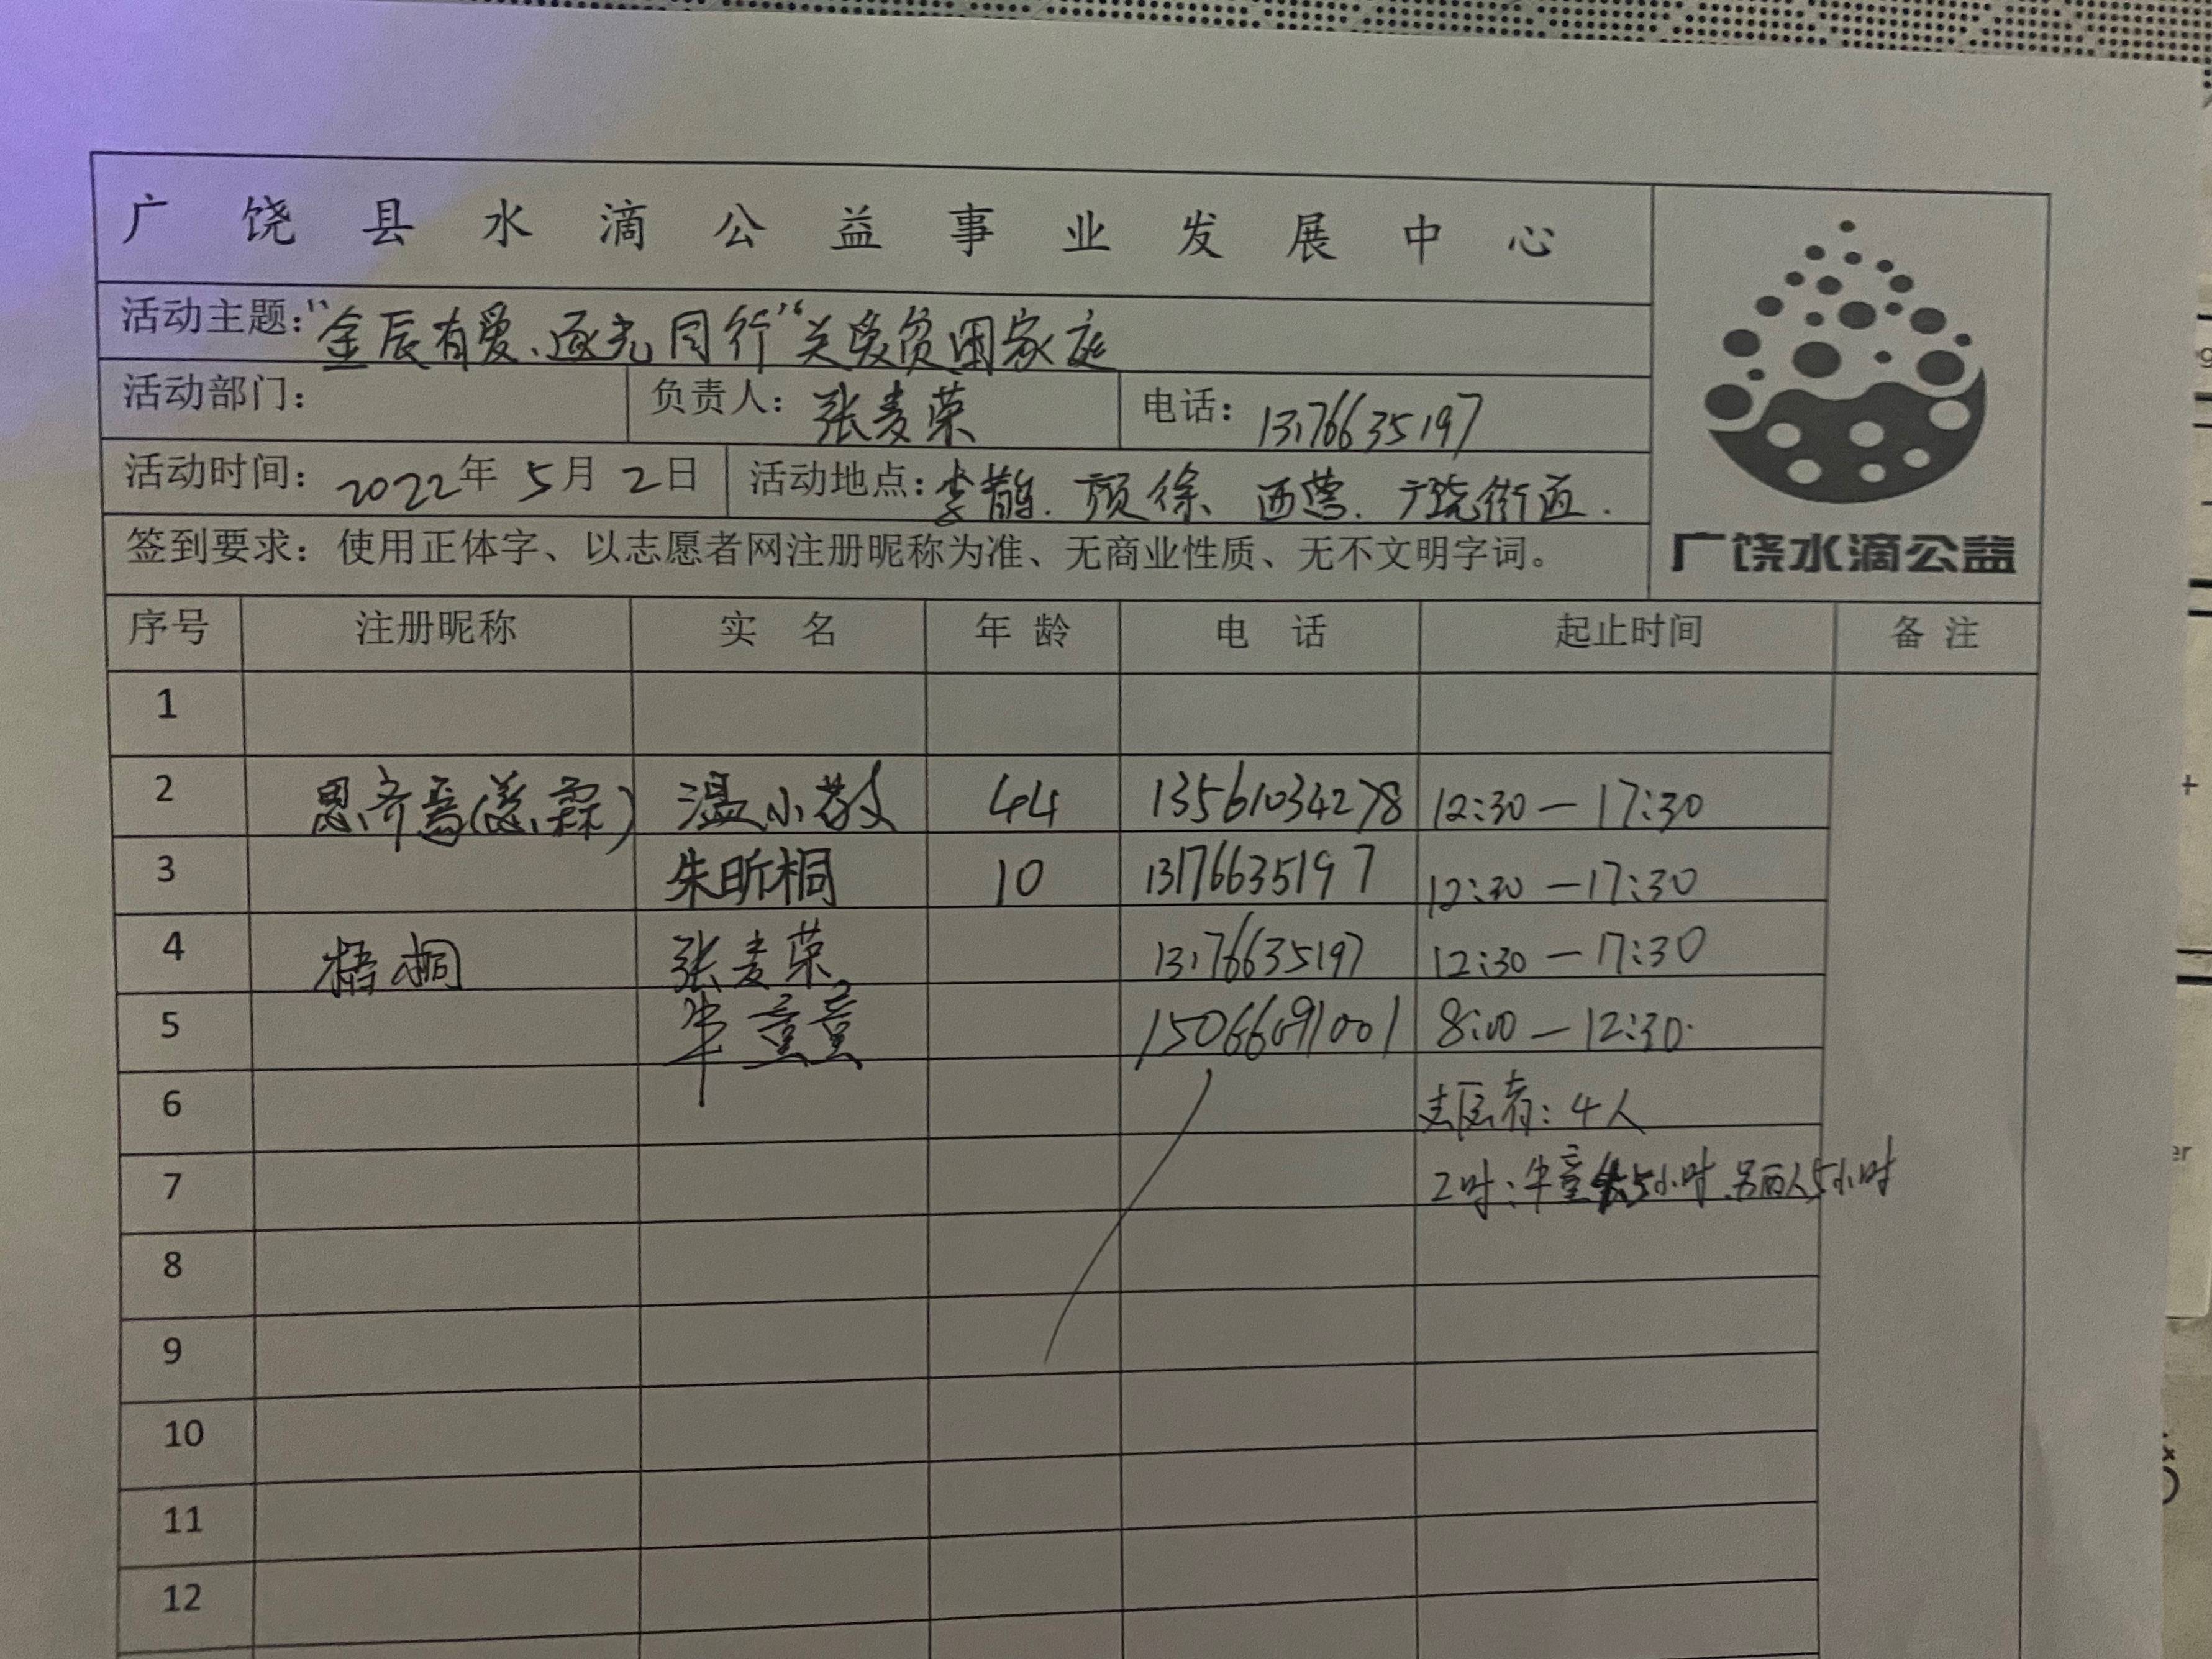 广饶县水滴公益事业发展中心
活动主题:“金辰有爱、逐光同行”关爱贫困家庭
活动部门: 负责人: 张麦荣 电话: 13176635197
活动时间: 2022年5月2日 活动地点: 李鹊. 颜徐、西营. 广饶街道.
签到要求: 使用正体字、以志愿者网注册昵称为准、无商业性质、无不文明字词。
广饶水滴公益
序号 注册昵称 实 名 年 龄 电 话 起止时间 备 注
1
2 思齐 温小 44 13561034278 12:30—17:30
3 朱昕桐 10 13176635197 12:30—17:30
4 梧桐 张麦荣 13176635197 12:30—17:30
5 牛童童 15066091001 8:00—12:30
6 志愿者: 4人
7 工时: 牛童 5小时. 另两人5小时
8
9
10
11
12